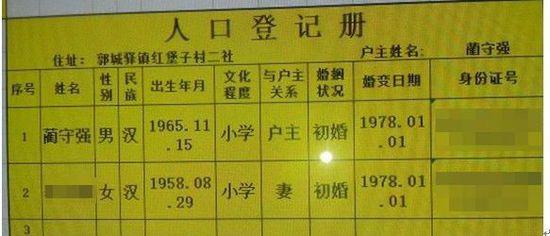 人口登记册
住址: 郭城驿镇红堡子村二社 户主姓名: 蔺守强
序号 姓名 性别 民族 出生年月 文化程度 与户主关系 婚姻状况 婚变日期 身份证号
1 蔺守强 男 汉 1965.11.15 小学 户主 初婚 1978.01.01
2 女 汉 1958.08.29 小学 妻 初婚 1978.01.01
3